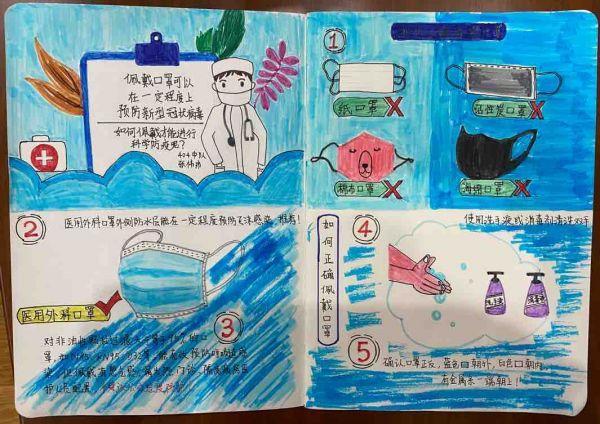 佩戴口罩可以
在一定程度上
预防新型冠状病毒
如何佩戴才能进行
科学防疫呢?
404中队
1
纸口罩
活性炭口罩
棉布口罩
海绵口罩
2
医用外科口罩外侧防水层能在一定程度预防飞沫感染,推荐!
医用外科口罩
3
对非油性颗粒过滤大于等于95%的口
罩,如N95、KN95
护人员配置
如何正确佩戴口罩
4
使用洗手液或消毒剂清洗双手
洗手液
5
确认口罩正反,蓝色口朝外,白色口朝内
有金属条一端朝上!